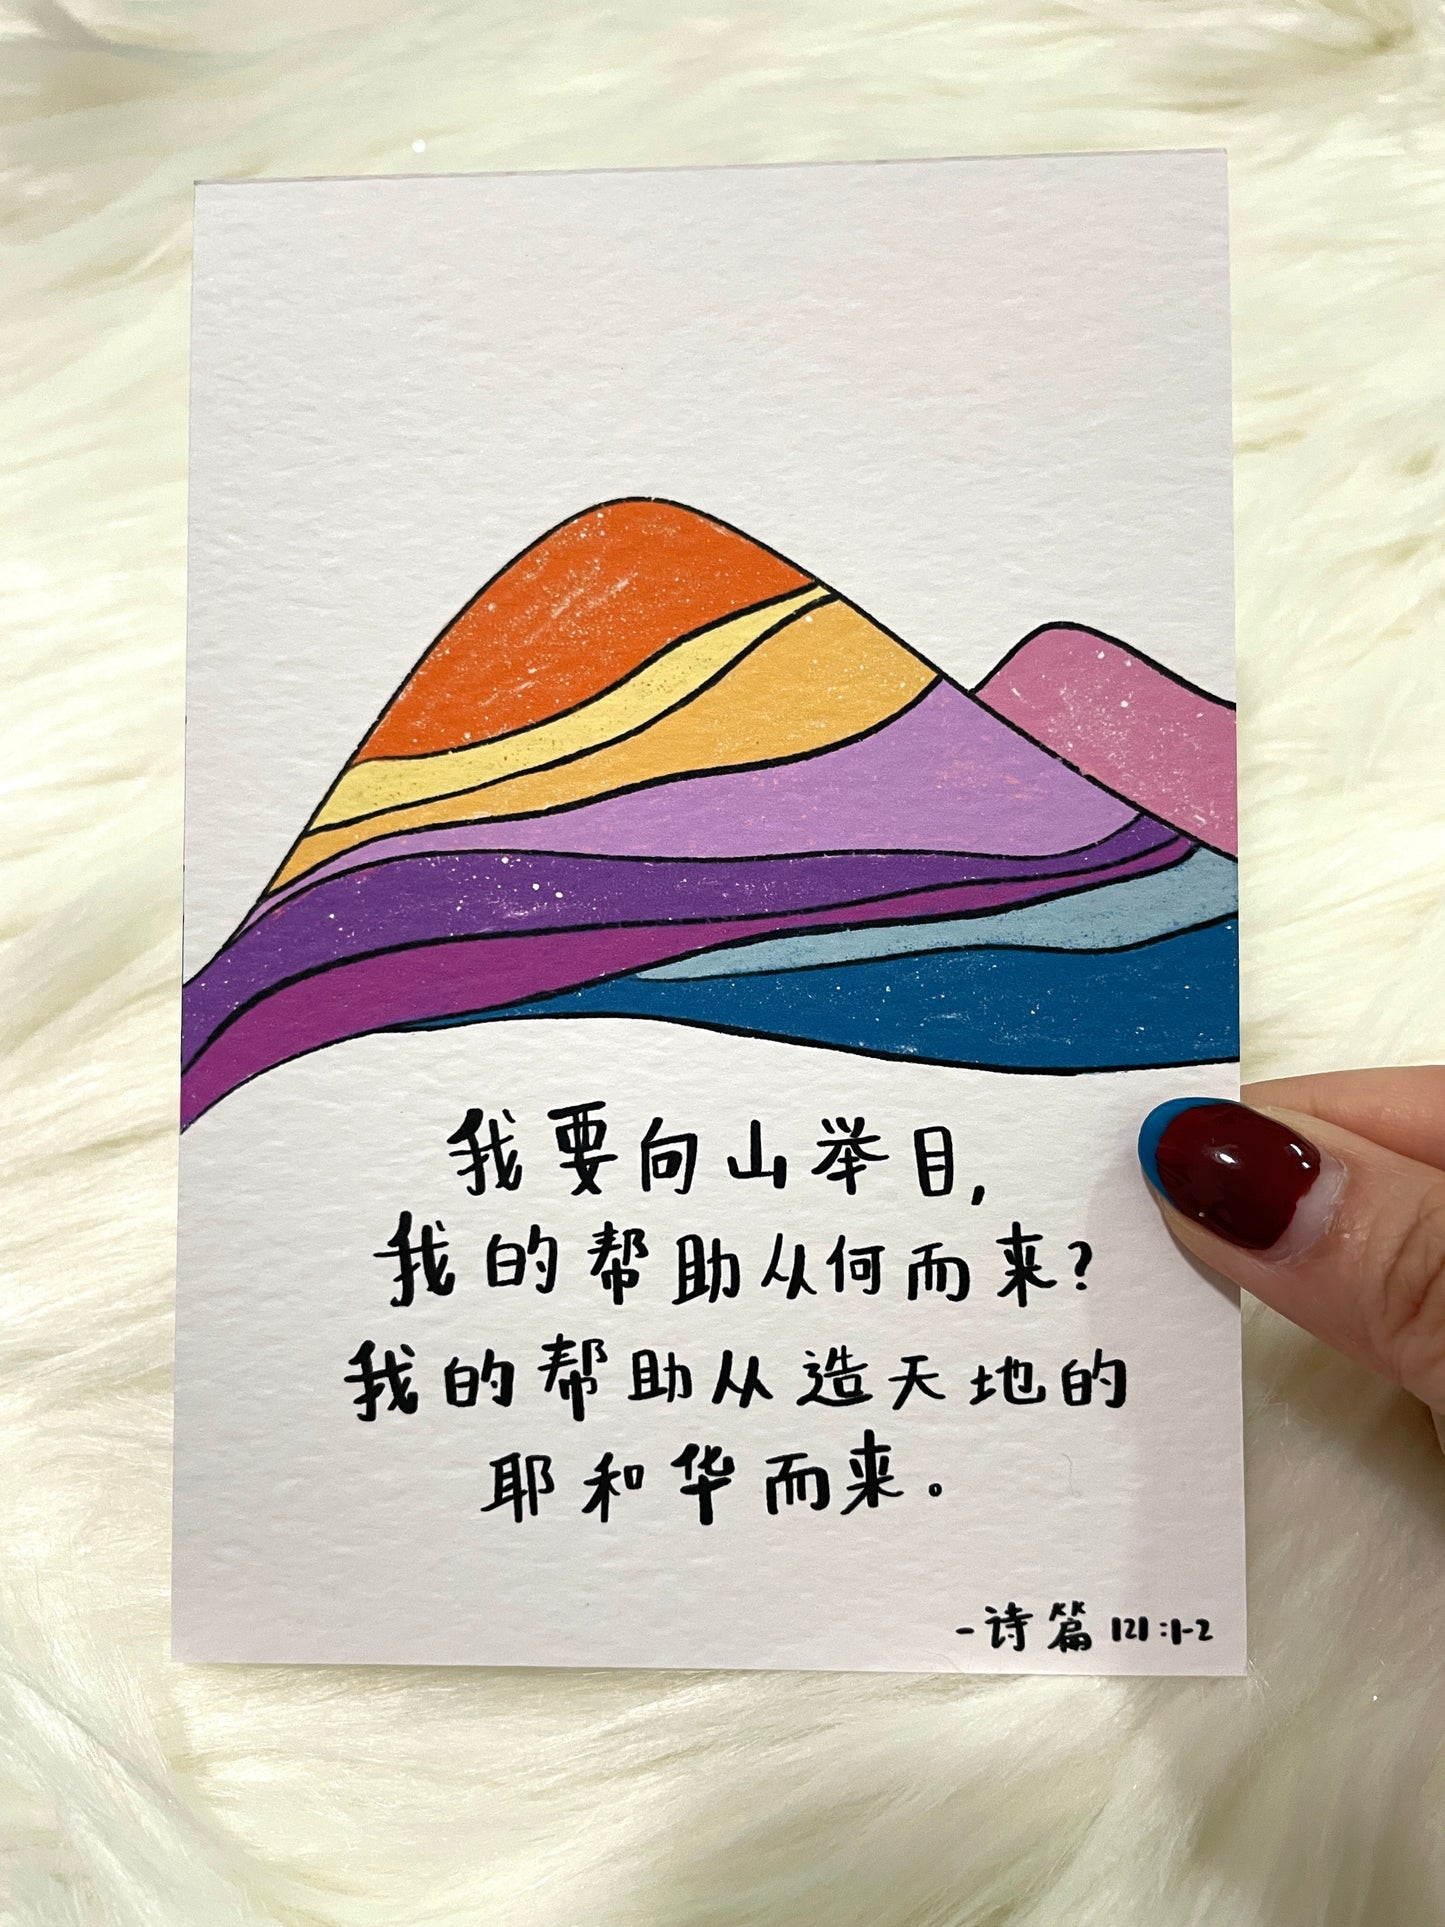 我要向山举目,
我的帮助从何而来?
我的帮助从造天地的
耶和华而来。
-诗篇 121:1-2